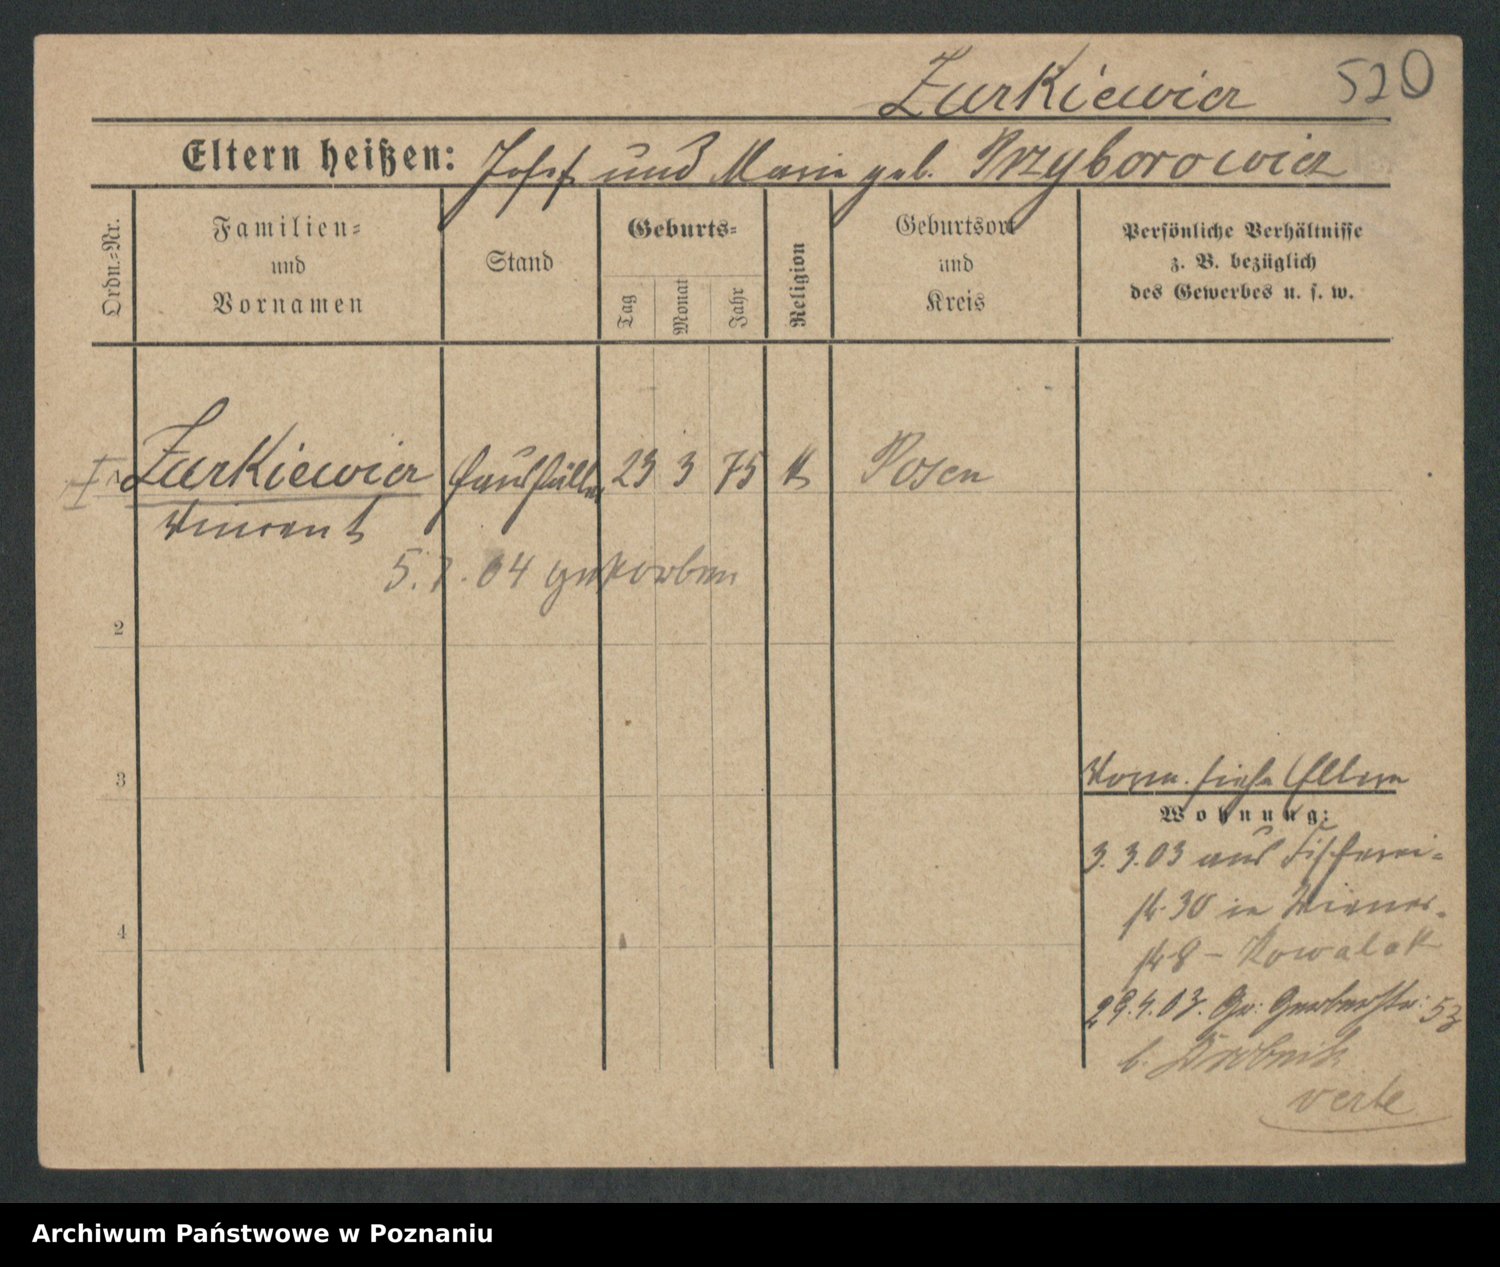 Zurkiewicz 520
Eltern heißen: Josef und Marie geb. Przyborowicz
Ordn.-Nr.
Familien-
und
Vornamen
Stand
Geburts-
Tag
Monat
Jahr
Religion
Geburtsort
und
Kreis
Persönliche Verhältnisse
z. B. bezüglich
des Gewerbes u. s. w.
I 1 Zurkiewicz 23 3 75 k Posen
Vincent
5. 7. 04 gestorben
2
3
4
Vorn. siehe Eltern
Wohnung:
3. 3. 03 aus Fischerei-
str 30 in Wiener-
str 8 - Kowalak
29. 4. 03. Gr. Gerberstr. 53
b.
verte
Archiwum Państwowe w Poznaniu